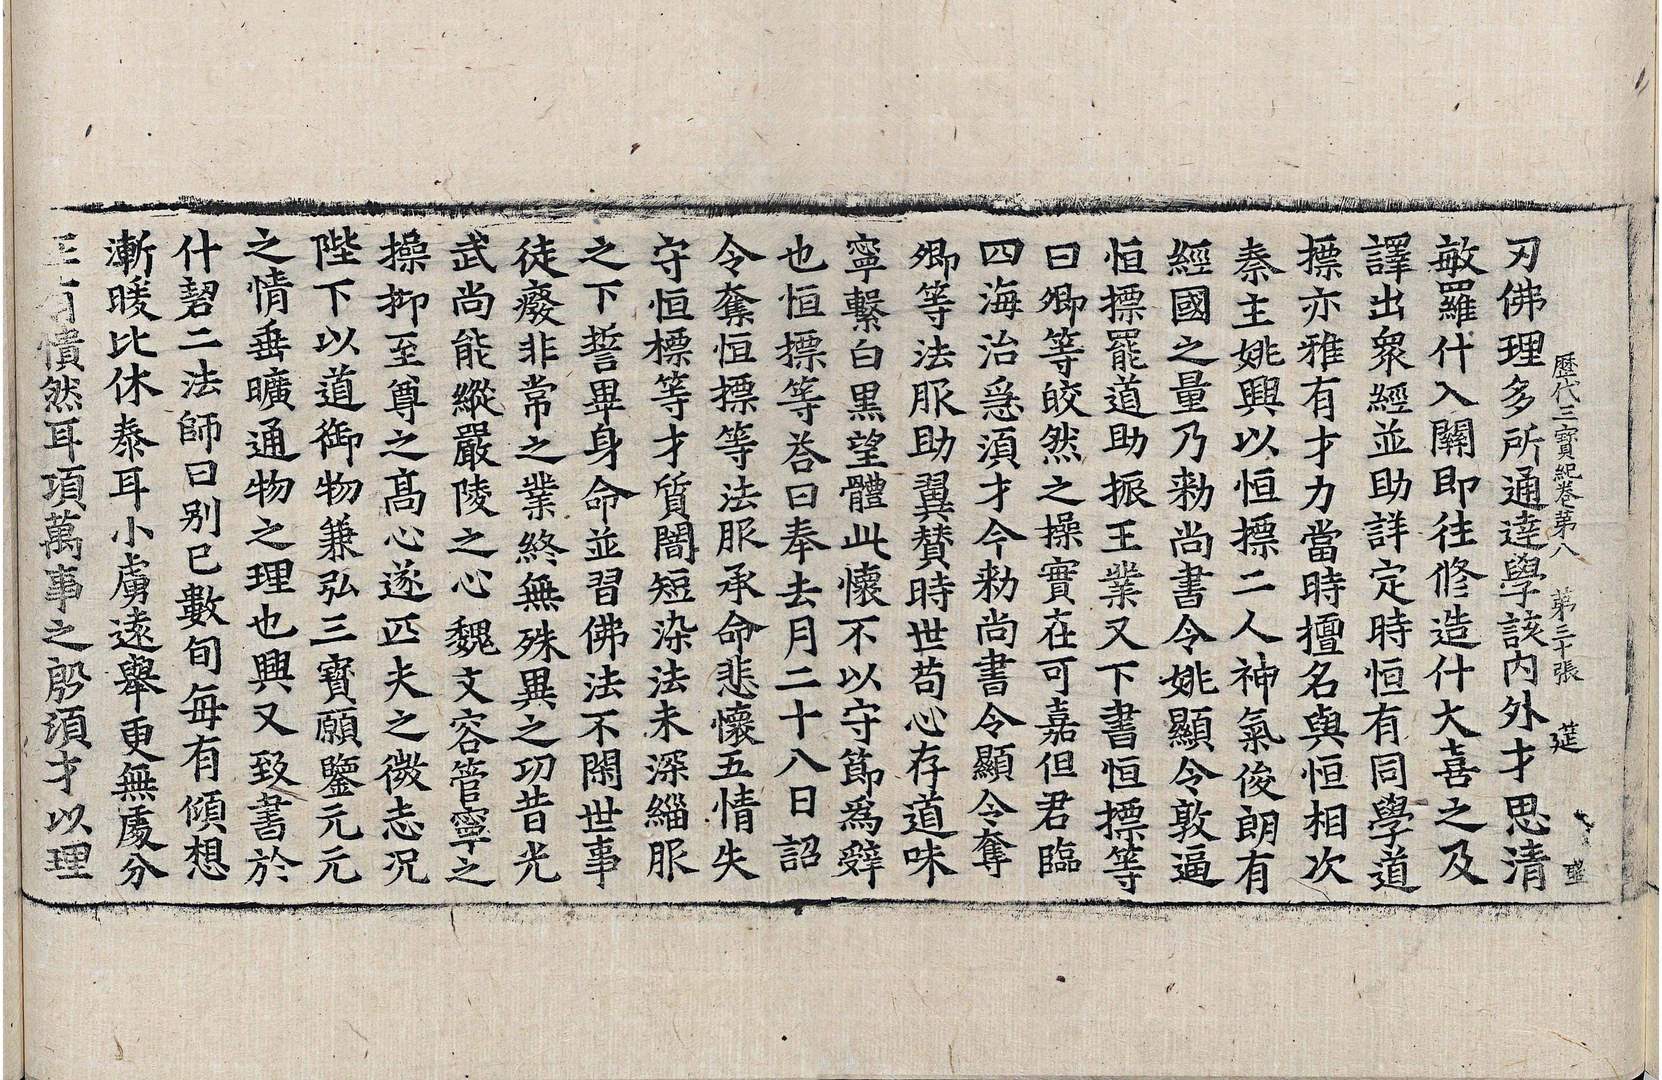 歷代三寶紀卷第八　第三十張　筵
刃佛理多所通達學該内外才思清
敏羅什入關即往修造什大喜之及
譯出衆經並助詳定時恒有同學道
摽亦雅有才力當時擅名與恒相次
秦主姚興以恒摽二人神氣俊朗有
經國之量乃勑尚書令姚顯令敦逼
恒摽罷道助振王業又下書恒摽等
曰卿等皎然之操實在可嘉但君臨
四海治急湏才今勑尚書令顯令奪
卿等法服助翼賛時世苟心存道味
寧繫白黒望體此懷不以守節爲辤
也恒摽等荅曰奉去月二十八日詔
令奪恒摽等法服承命悲懷五情失
守恒標等才質闇短染法未深緇服
之下誓畢身命並習佛法不閑世事
徒廢非常之業終無殊異之功昔光
武尚能縱嚴陵之心魏文容管寧之
操抑至尊之髙心遂匹夫之微志况
陛下以道御物兼弘三寳願鑒元元
之情垂曠通物之理也興又致書於
什䂮二法師曰别已數旬毎有傾想
漸暖比休泰耳小虜遠舉更無處分
正有憒然耳項萬事之殷湏才以理